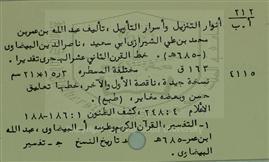 ٢١٢
أ.ب
أنوار التنزيل وأسرار التأويل، تأليف عبد الله بن عمر بن
محمد بن علي الشيرازي أبي سعيد، ناصر الدين البيضاوي
(-٦٨٥هـ). خط القرن الثاني عشر الهجري تقديرا.
٤١١٥
١٦٣ ق مختلفة المسطرة ٢١×١٥ سم
نسخة جيدة، ناقصة الأول والآخر، خطها تعليق
حسن وبعضه مغاير، (طبع).
الأعلام ٤: ٢٤٨، كشف الظنون ١: ١٨٦-١٨٨
١- التفسير، القرآن الكريم وعلومه أ- البيضاوي، عبد الله
ابن عمر -٦٨٥هـ ب- تاريخ النسخ ج- تفسير
البيضاوي.